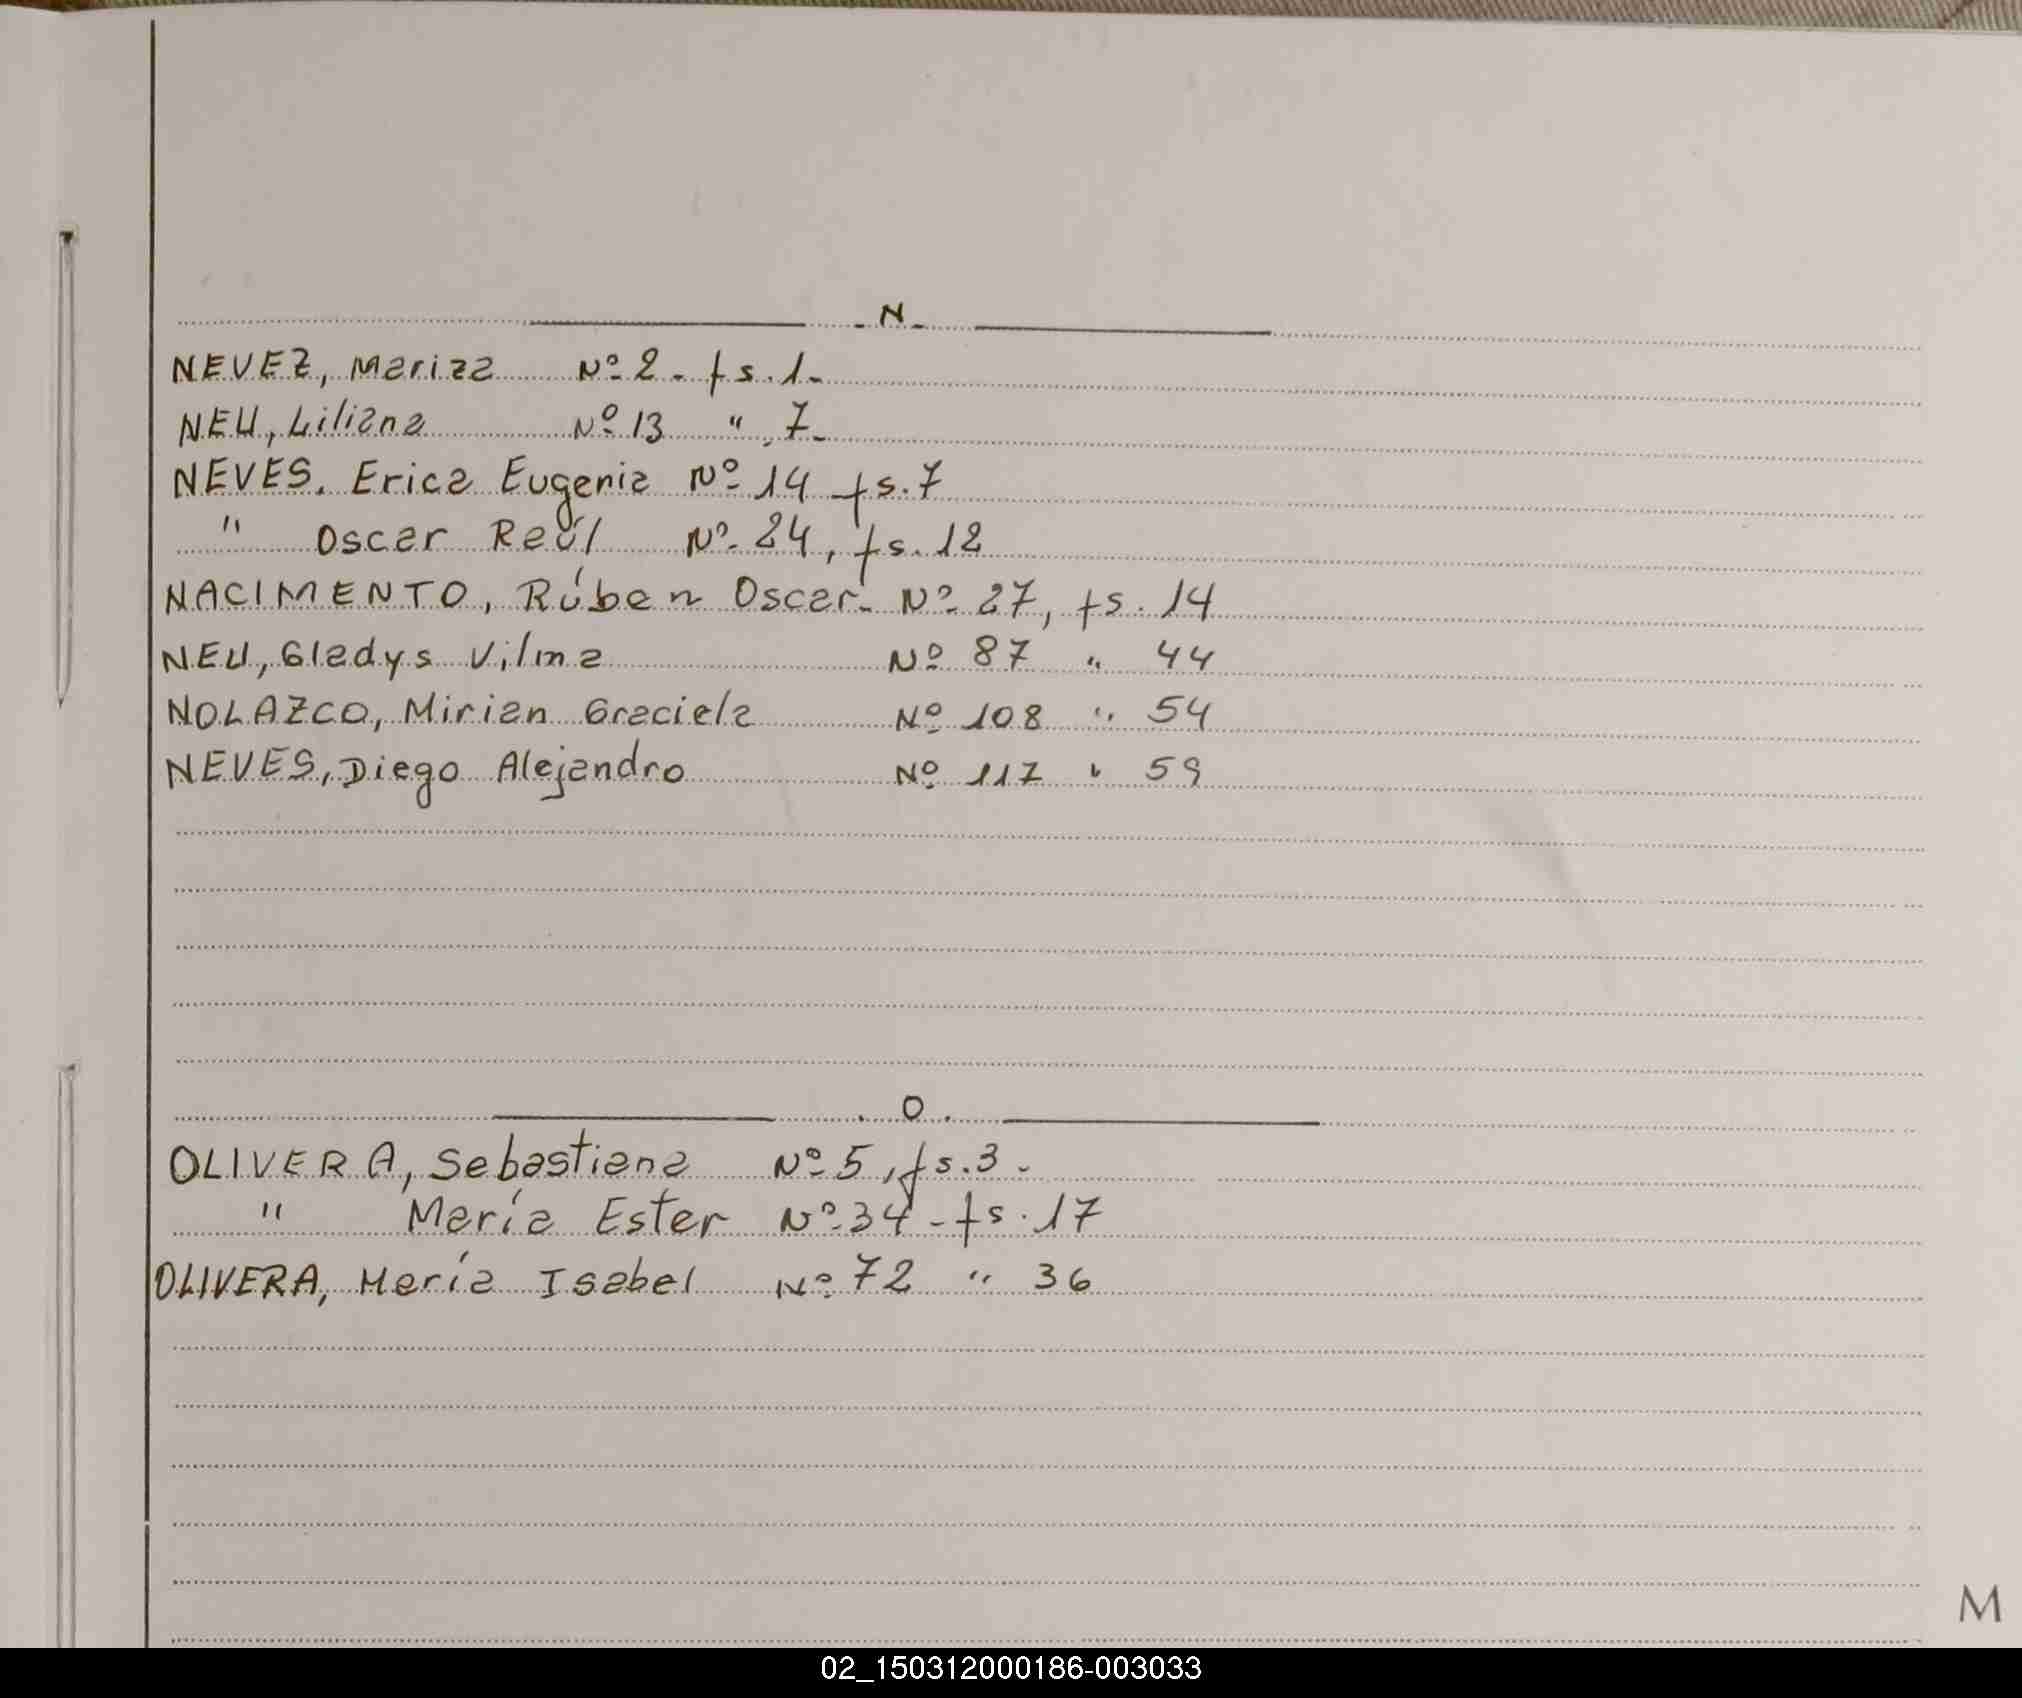 - N -
NEVEZ, Mariza Nº 2 - fs. 1 -
NEU, Liliana Nº 13 " 7 -
NEVES. Erica Eugenia Nº 14 fs. 7
" Oscar Raúl Nº 24, fs. 12
NACIMENTO, Rúben Oscar - Nº 27, fs. 14
NEU, Gladys Vilma Nº 87 " 44
NOLAZCO, Mirian Graciela Nº 108 " 54
NEVES, Diego Alejandro Nº 117 " 59
. O .
OLIVERA, Sebastiana Nº 5, fs. 3 -
" María Ester Nº 34 - fs. 17
OLIVERA, María Isabel Nº 72 " 36
M
02_150312000186-003033